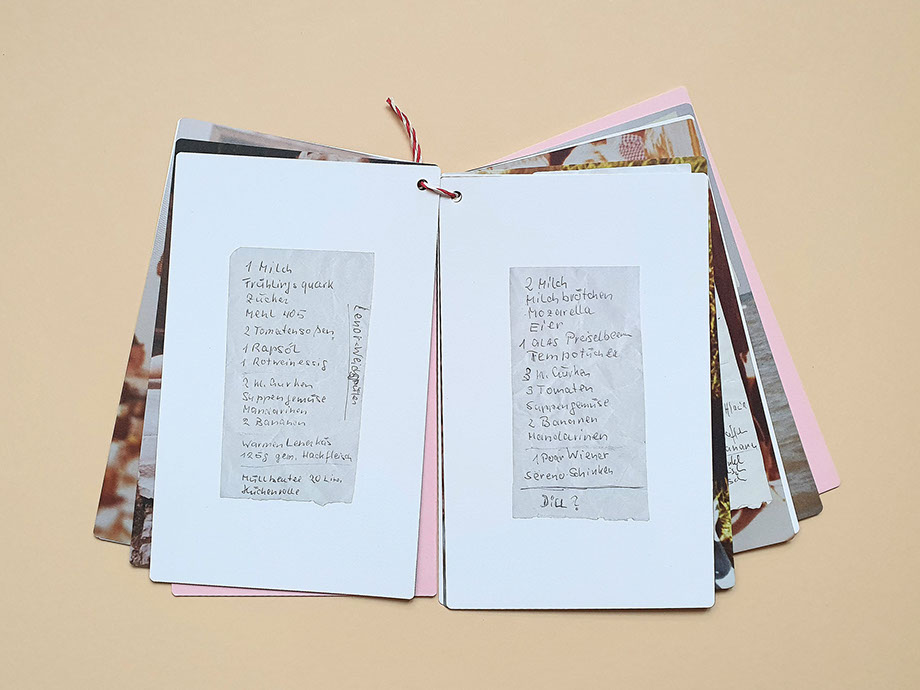 1 Milch
Frühlingsquark
Zucker
Mehl 405
2 Tomatensoßen
1 Rapsöl
1 Rotweinessig
2 kl. Gurken
Suppengemüse
Mandarinen
2 Bananen
warmen Leberkäs
125g gem. Hackfleisch
Müllbeutel 20 Lit.
Küchenrolle
Lenor-Weichspüler
2 Milch
Milchbrötchen
Mozarella
Eier
1 GLAS Preiselbeern
Tempotücher
3 kl. Gurken
3 Tomaten
Suppengemüse
2 Bananen
Mandarinen
1 Paar Wiener
Sereno Schinken
Dill?